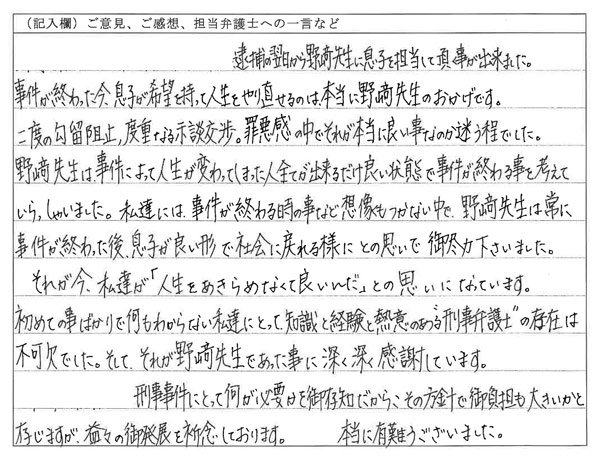 （記入欄）ご意見、ご感想、担当弁護士への一言など
逮捕の翌日から野﨑先生に息子を担当して頂く事が出来ました。
事件が終わった今、息子が希望を持って人生をやり直せるのは、本当に野﨑先生のおかげです。
二度の勾留阻止、度重なる示談交渉。罪悪感の中でそれが本当に良い事なのか迷う程でした。
野﨑先生は、事件によって人生が変わってしまった人全てが出来るだけ良い状態で事件が終わる事を考えて
いらっしゃいました。私達には、事件が終わる時の事など想像もつかない中で、野﨑先生は常に
事件が終わった後、息子が良い形で社会に戻れる様に との思いで 御尽力下さいました。
それが今、私達が「人生をあきらめなくて良いんだ」との思いになっています。
初めての事ばかりで何もわからない私達にとって、知識と経験と熱意のある“刑事弁護士”の存在は
不可欠でした。そして、それが野﨑先生であった事に深く深く感謝しています。
刑事事件にとって何が必要かを御存知だからこその方針で御負担も大きいかと
存じますが、益々の御発展を祈念しております。 本当に有難うございました。